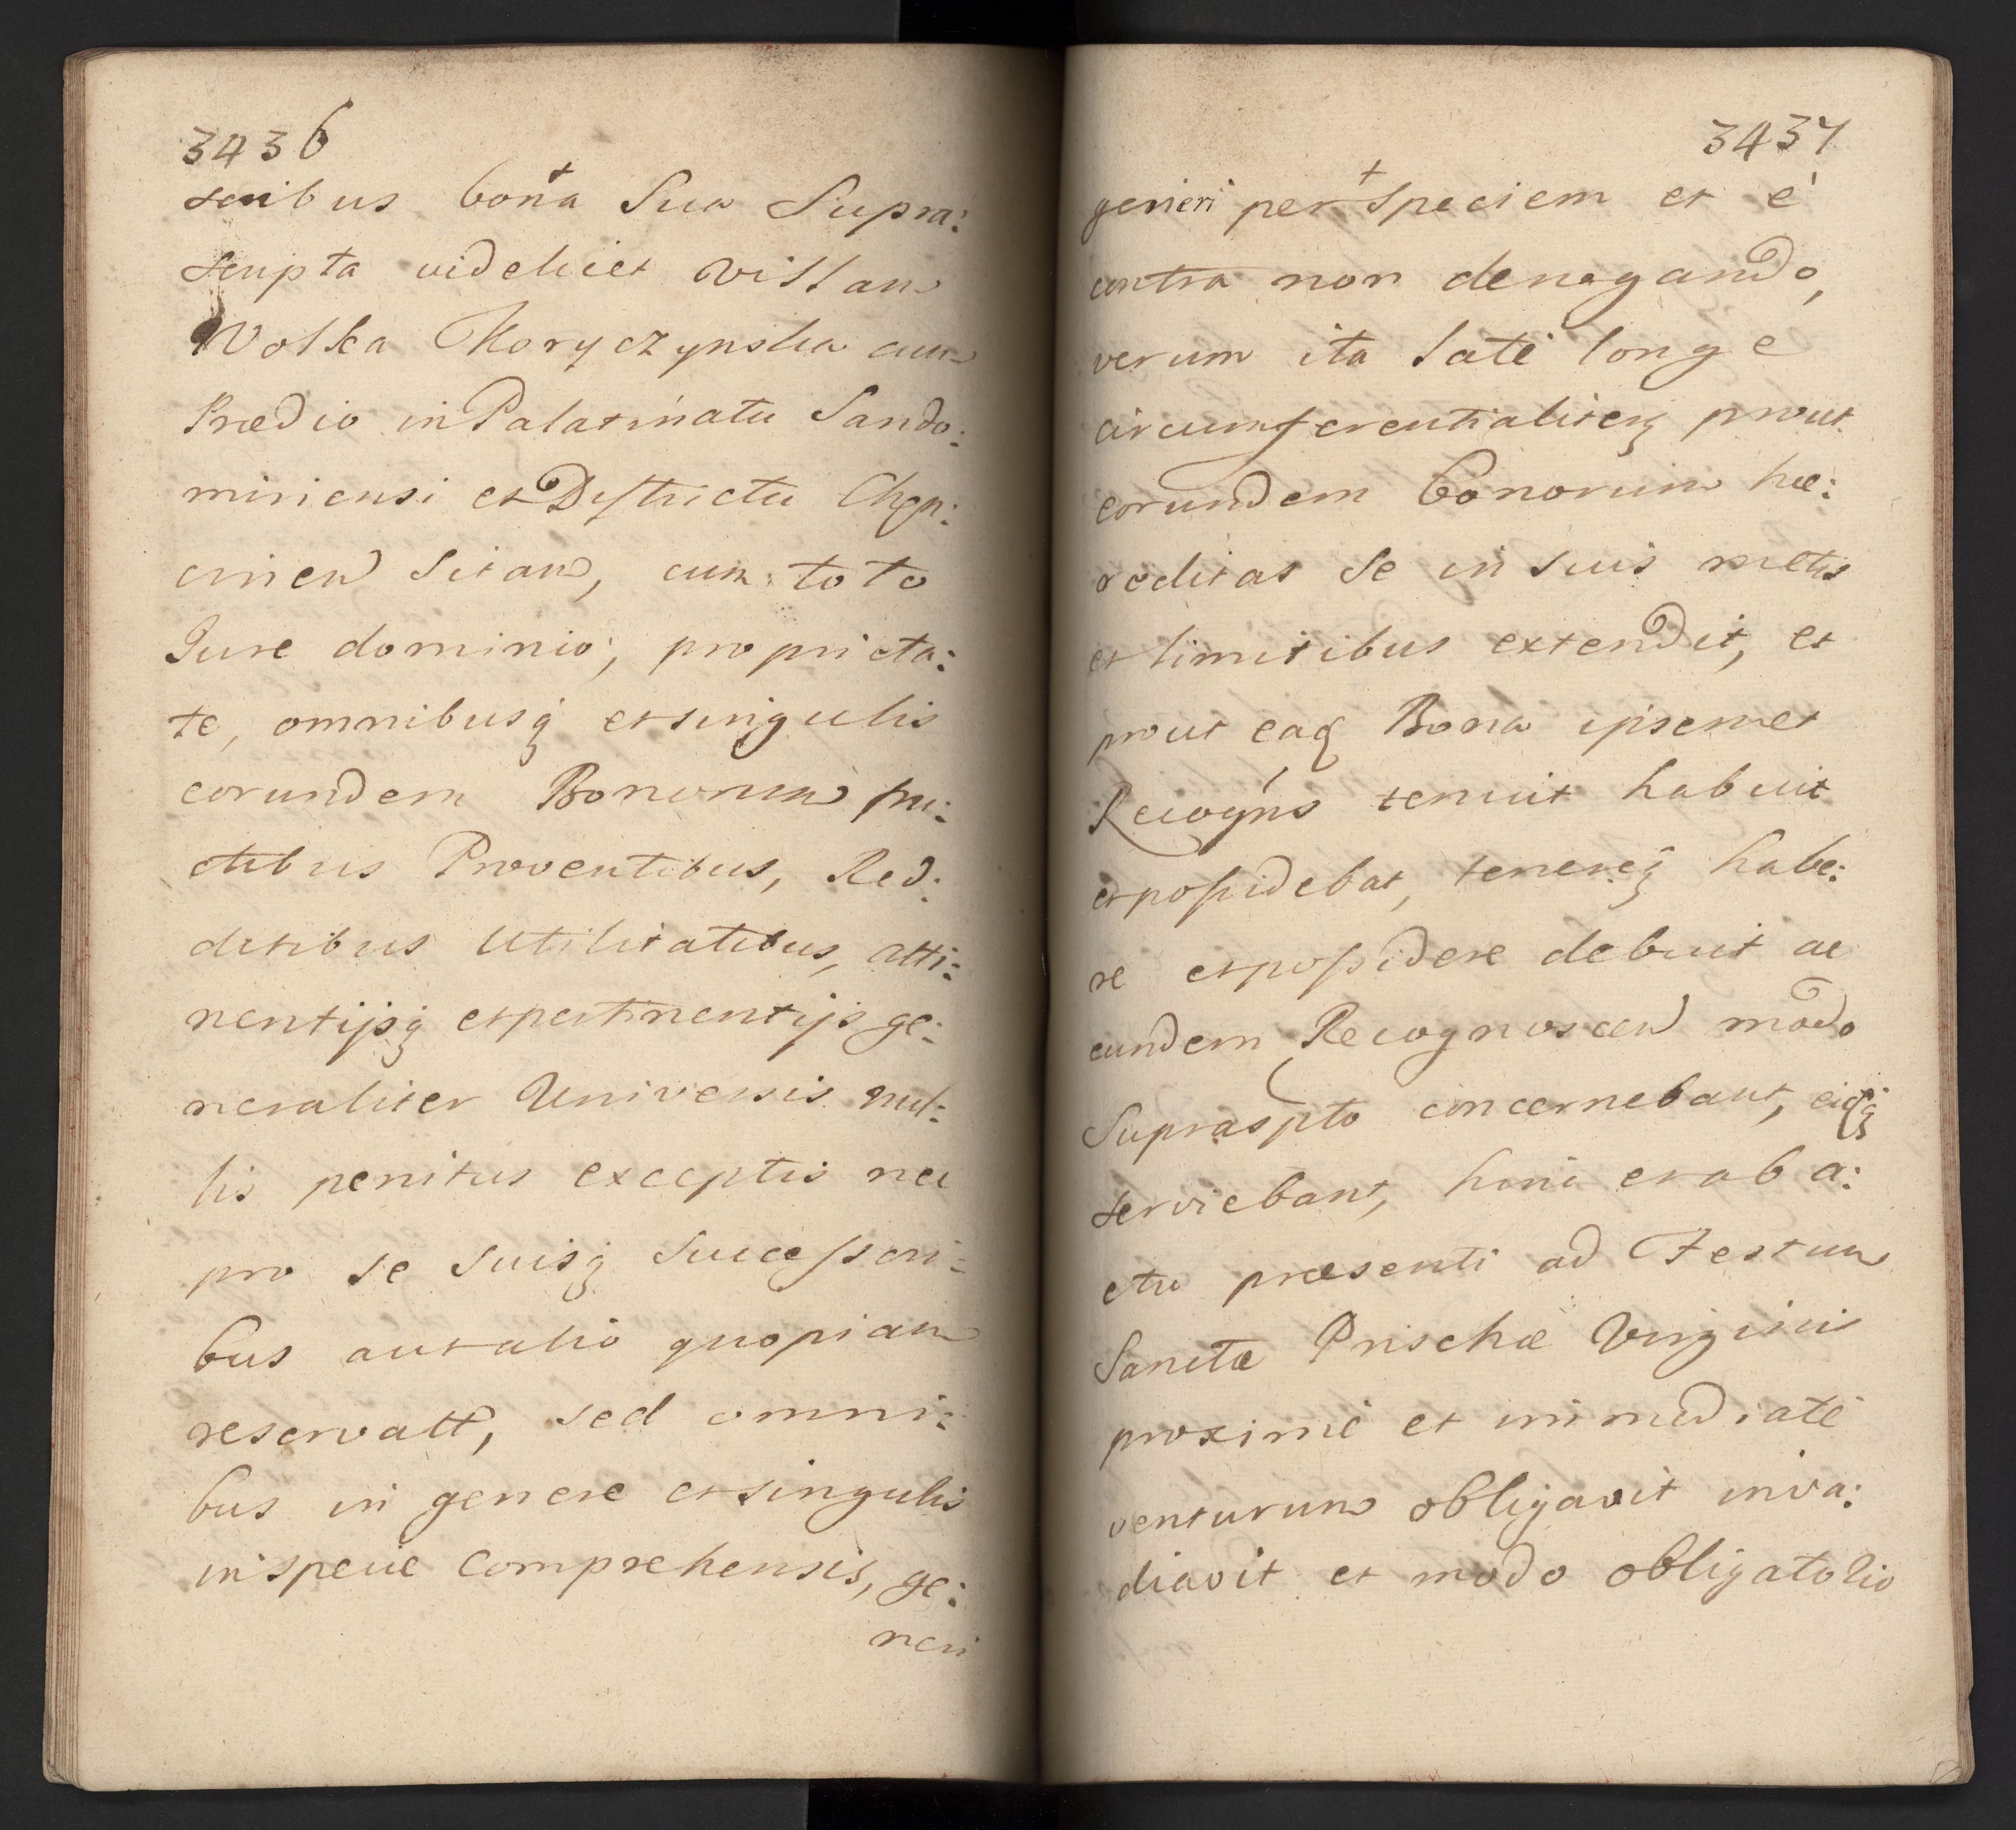 3436
soribus bona Sua Supra:
scripta videlicet Villam
Wolka Moryczynska cum
Prædio in Palatinatu Sando:
miriensi et Districtu Chęn:
cinen Sitam, cum toto
Jure dominio, proprieta:
te, omnibusq et singulis
eorundem Bonorum fru:
ctibus Proventibus, Red:
ditibus Utilitatibus, atti:
nentijsq et pertinentijs ge:
neraliter Universis nul:
lis penitus exceptis nec
pro se suisq Successori:
bus aut alio quopiam
reservatt, sed omni:
bus in genere et singulis
in specie Comprehensis, ge:
neri
3437
generi per speciem et é
contra non denegando,
verum ita laté longe
circumferentialiterq prout
eorundem Bonorum hæ:
reditas se in suis metis
et limitibus extendit, et
prout eaq Bona ipsemet
Recogns tenuit habuit
et possidebat, tenereq habe:
re et possidere debuit ac
eundem Recognoscen modo
Suprasꝑto concernebant, eidq
serviebant, hinc et ab a:
ctu præsenti ad Festum
Sanctæ Prischæ Virginis
proximé et immediaté
venturum obligavit inva:
diavit et modo obligatolio